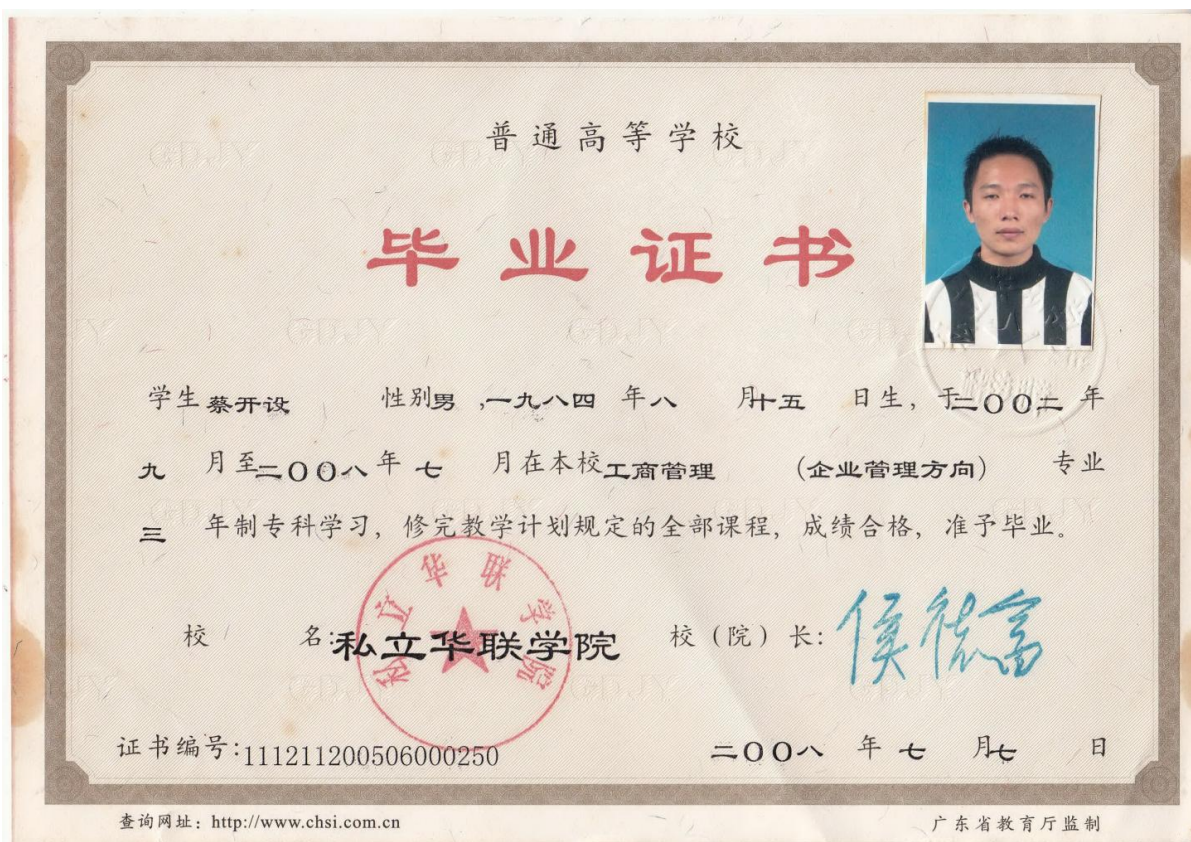 普通高等学校
毕业证书
学生 蔡开设 性别男 ,一九八四 年 八 月十五 日生, 于二〇〇二 年
九 月至二〇〇八 年 七 月在本校工商管理 (企业管理方向) 专业
三 年制专科学习, 修完教学计划规定的全部课程, 成绩合格, 准予毕业。
私立华联学院
校 名:私立华联学院 校（院）长: 侯德富
证书编号:111211200506000250 二〇〇八 年 七 月七 日
查询网址: http://www.chsi.com.cn 广东省教育厅监制